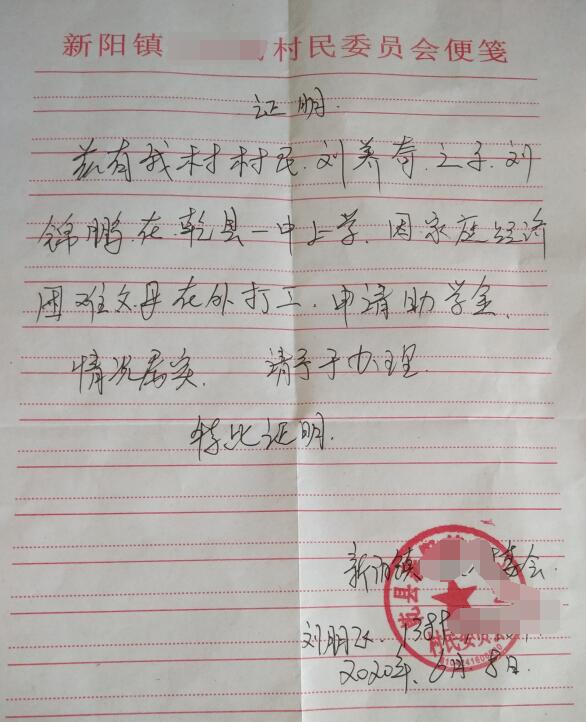 新阳镇 村民委员会便笺
证明.
兹有我村村民.刘养奇.之子.刘
锦鹏.在.乾县一中上学.因家庭经济
困难父母在外打工.申请助学金.
情况属实. 请予于办理.
特此证明.
新阳镇 委会
刘朋 138
村民委员会
2020年.6月8日